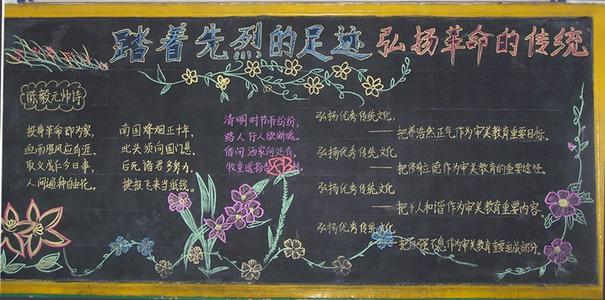 踏着先烈的足迹 弘扬革命的传统
陈毅元帅诗
投身革命即为家,
血雨腥风应有涯。
取义成仁今日事,
人间遍种自由化。
南国烽烟正十年,
此头须向国门悬。
后死诸君多努力,
捷报飞来当纸钱。
清明时节雨纷纷,
路人行人欲断魂。
借问酒家何处有,
牧童遥指
弘扬优秀传统文化,
——把养浩然正气作为审美教育重要目标。
弘扬优秀传统文化,
——把修身立德作为审美教育的重要途径。
弘扬优秀传统文化,
——把天人和谐作为审美教育重要内容。
弘扬优秀传统文化,
——把自强不息作为审美教育重要组成部分。